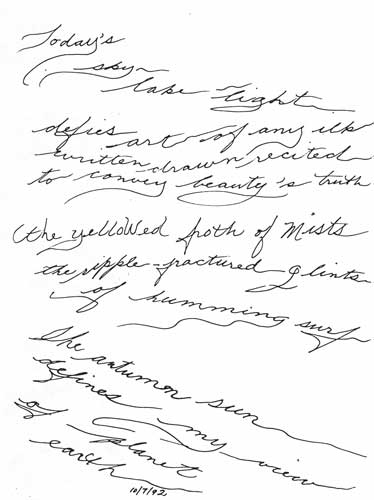 Today's
sky
lake light
defies art of any ilk
written drawn recited
to convey beauty's truth
(the yellowed froth of Mists
the ripple-fractured glints
of humming surf
the autumn sun
defines my view
of planet
earth
10/7/92